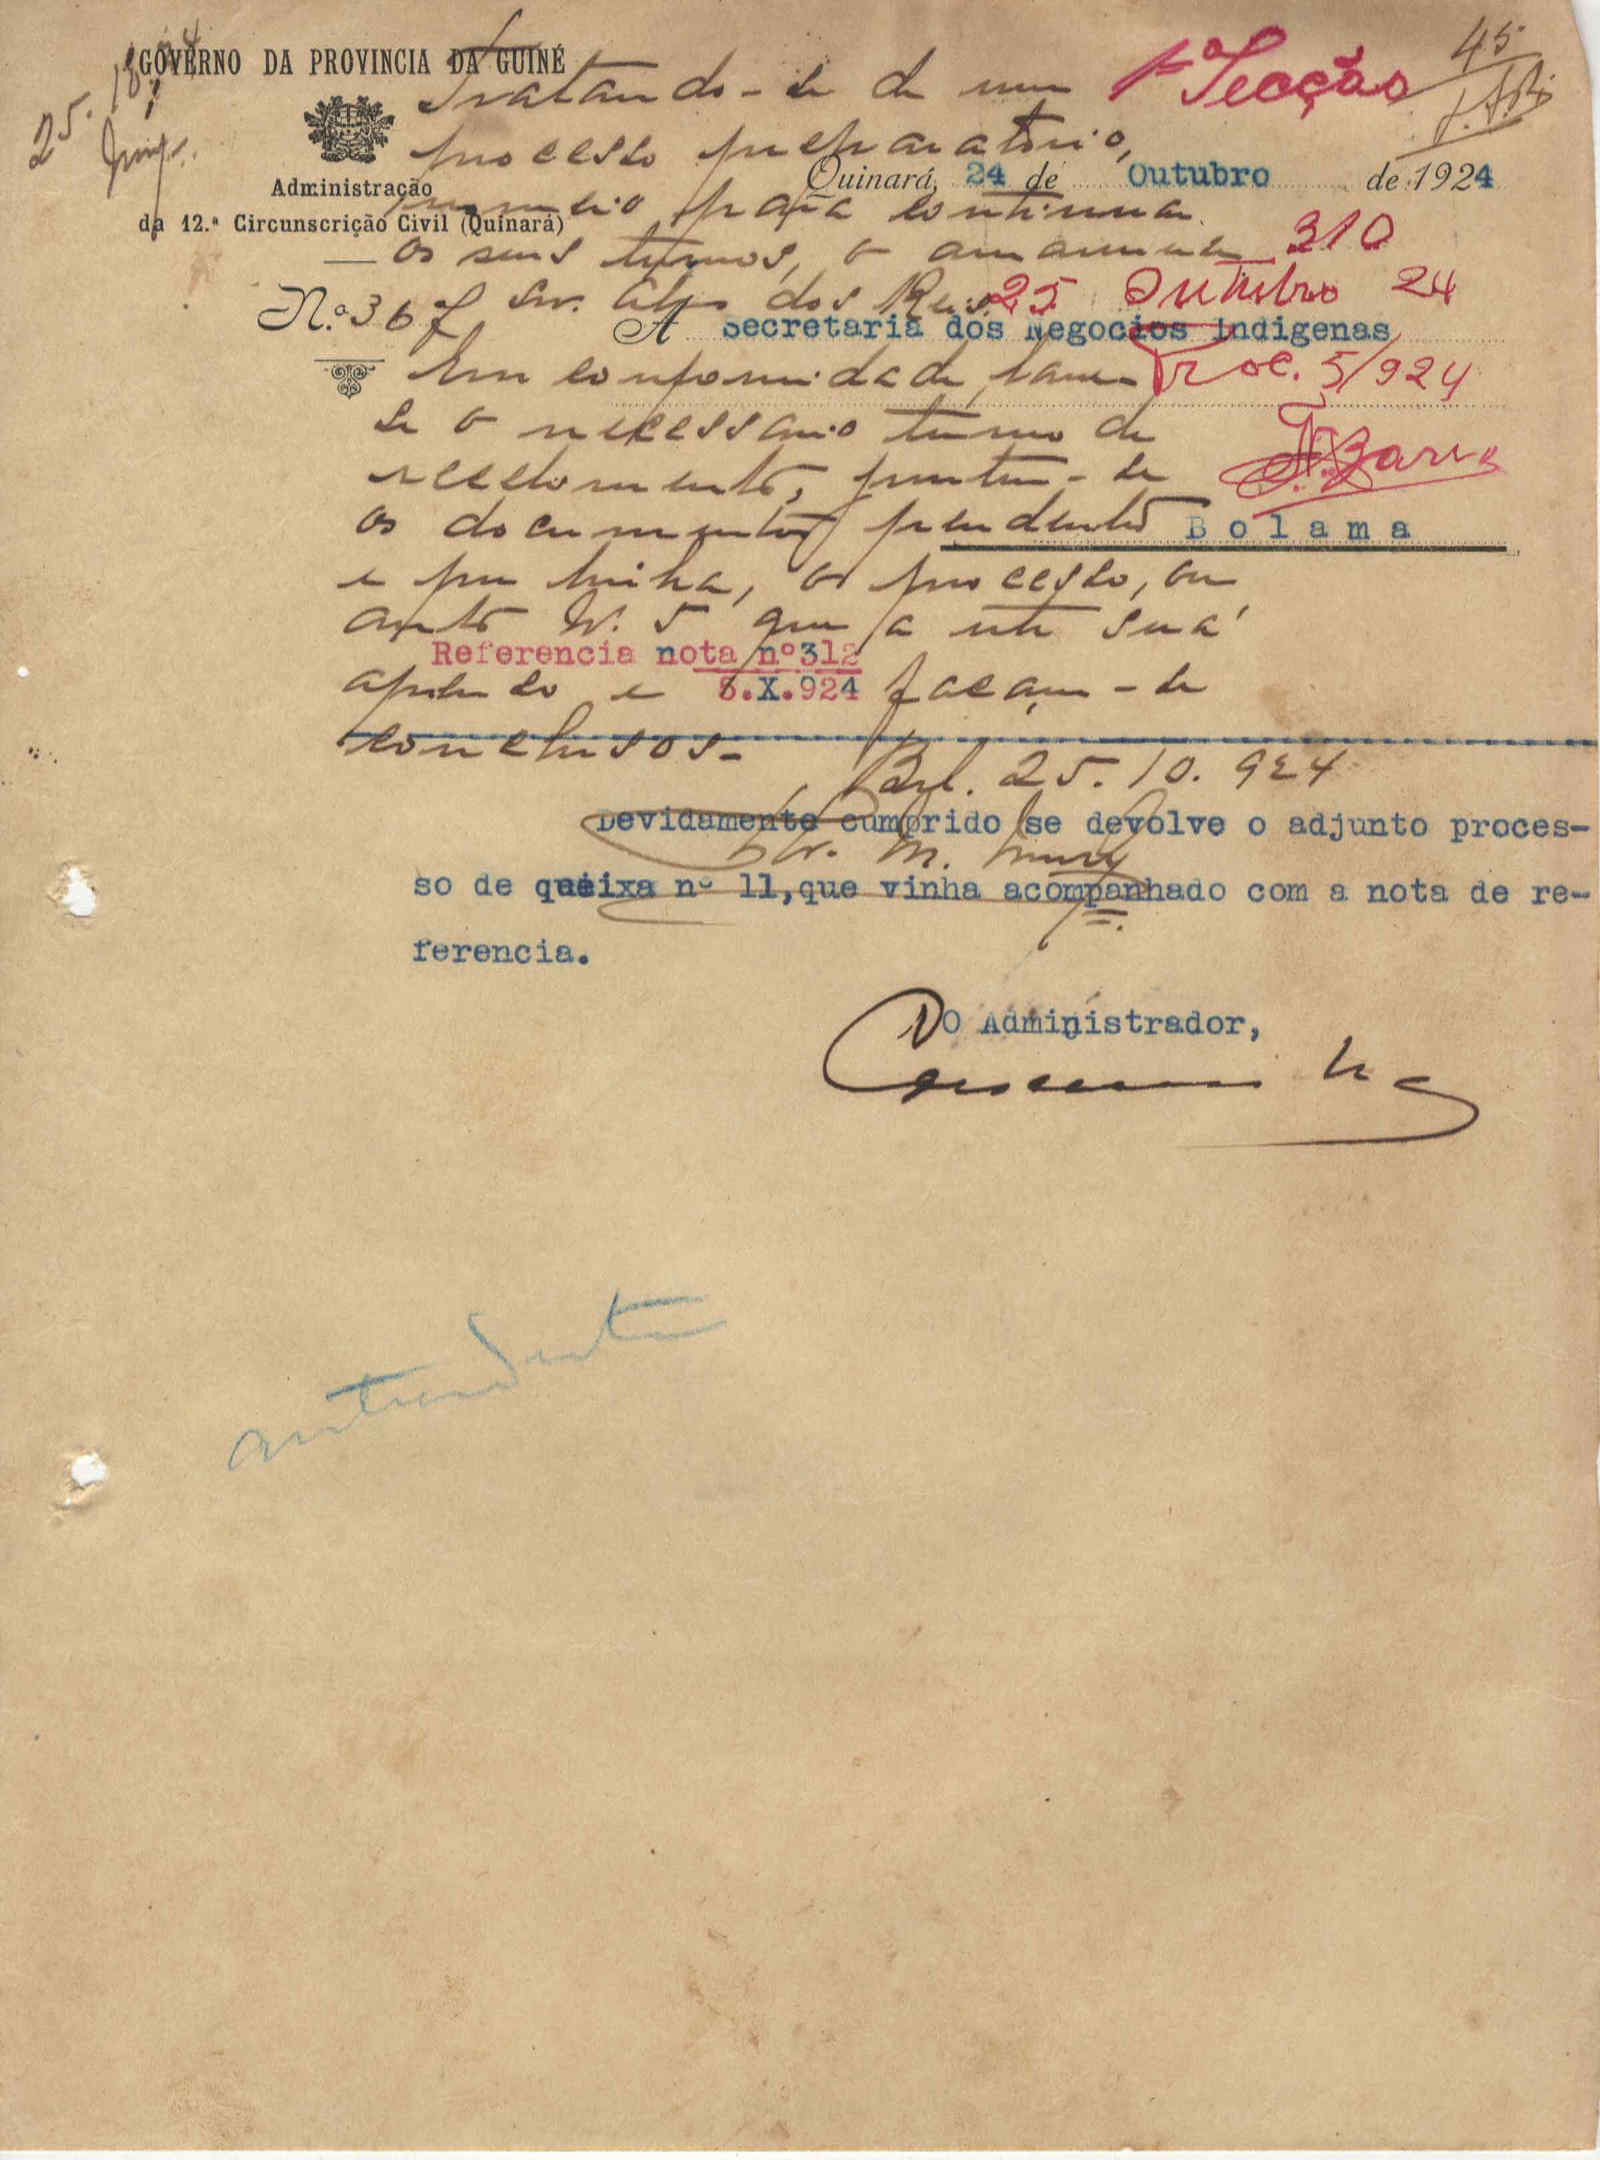 GOVERNO DA PROVINCIA DA GUINÉ
Administração
da 12.ª Circunscrição Civil (Quínará)
1ª Secção
45
Quinará, 24 de Outubro de 1924
Nº 367
310
25 Outubro 24
A Secretaria dos Negocios Indigenas
Proc. 5/924
Bolama
Tratando-se de um
processo preparatorio,
nomeio para continuar
os seus termos, o amanuense
Snr. dos Reis.
Em conformidade, lavre-
se o necessario termo de
recebimento, juntem-se
os documentos pendentes
e por linha, o processo, ou
auto Nº 5 que a este está
apenso e façam-se
conclusos-
Bol. 25.10.924
Referencia nota nº 312
8.X.924
Devidamente cumprido se devolve o adjunto proces-
so de queixa nº 11, que vinha acompanhado com a nota de re-
ferencia.
O Administrador,